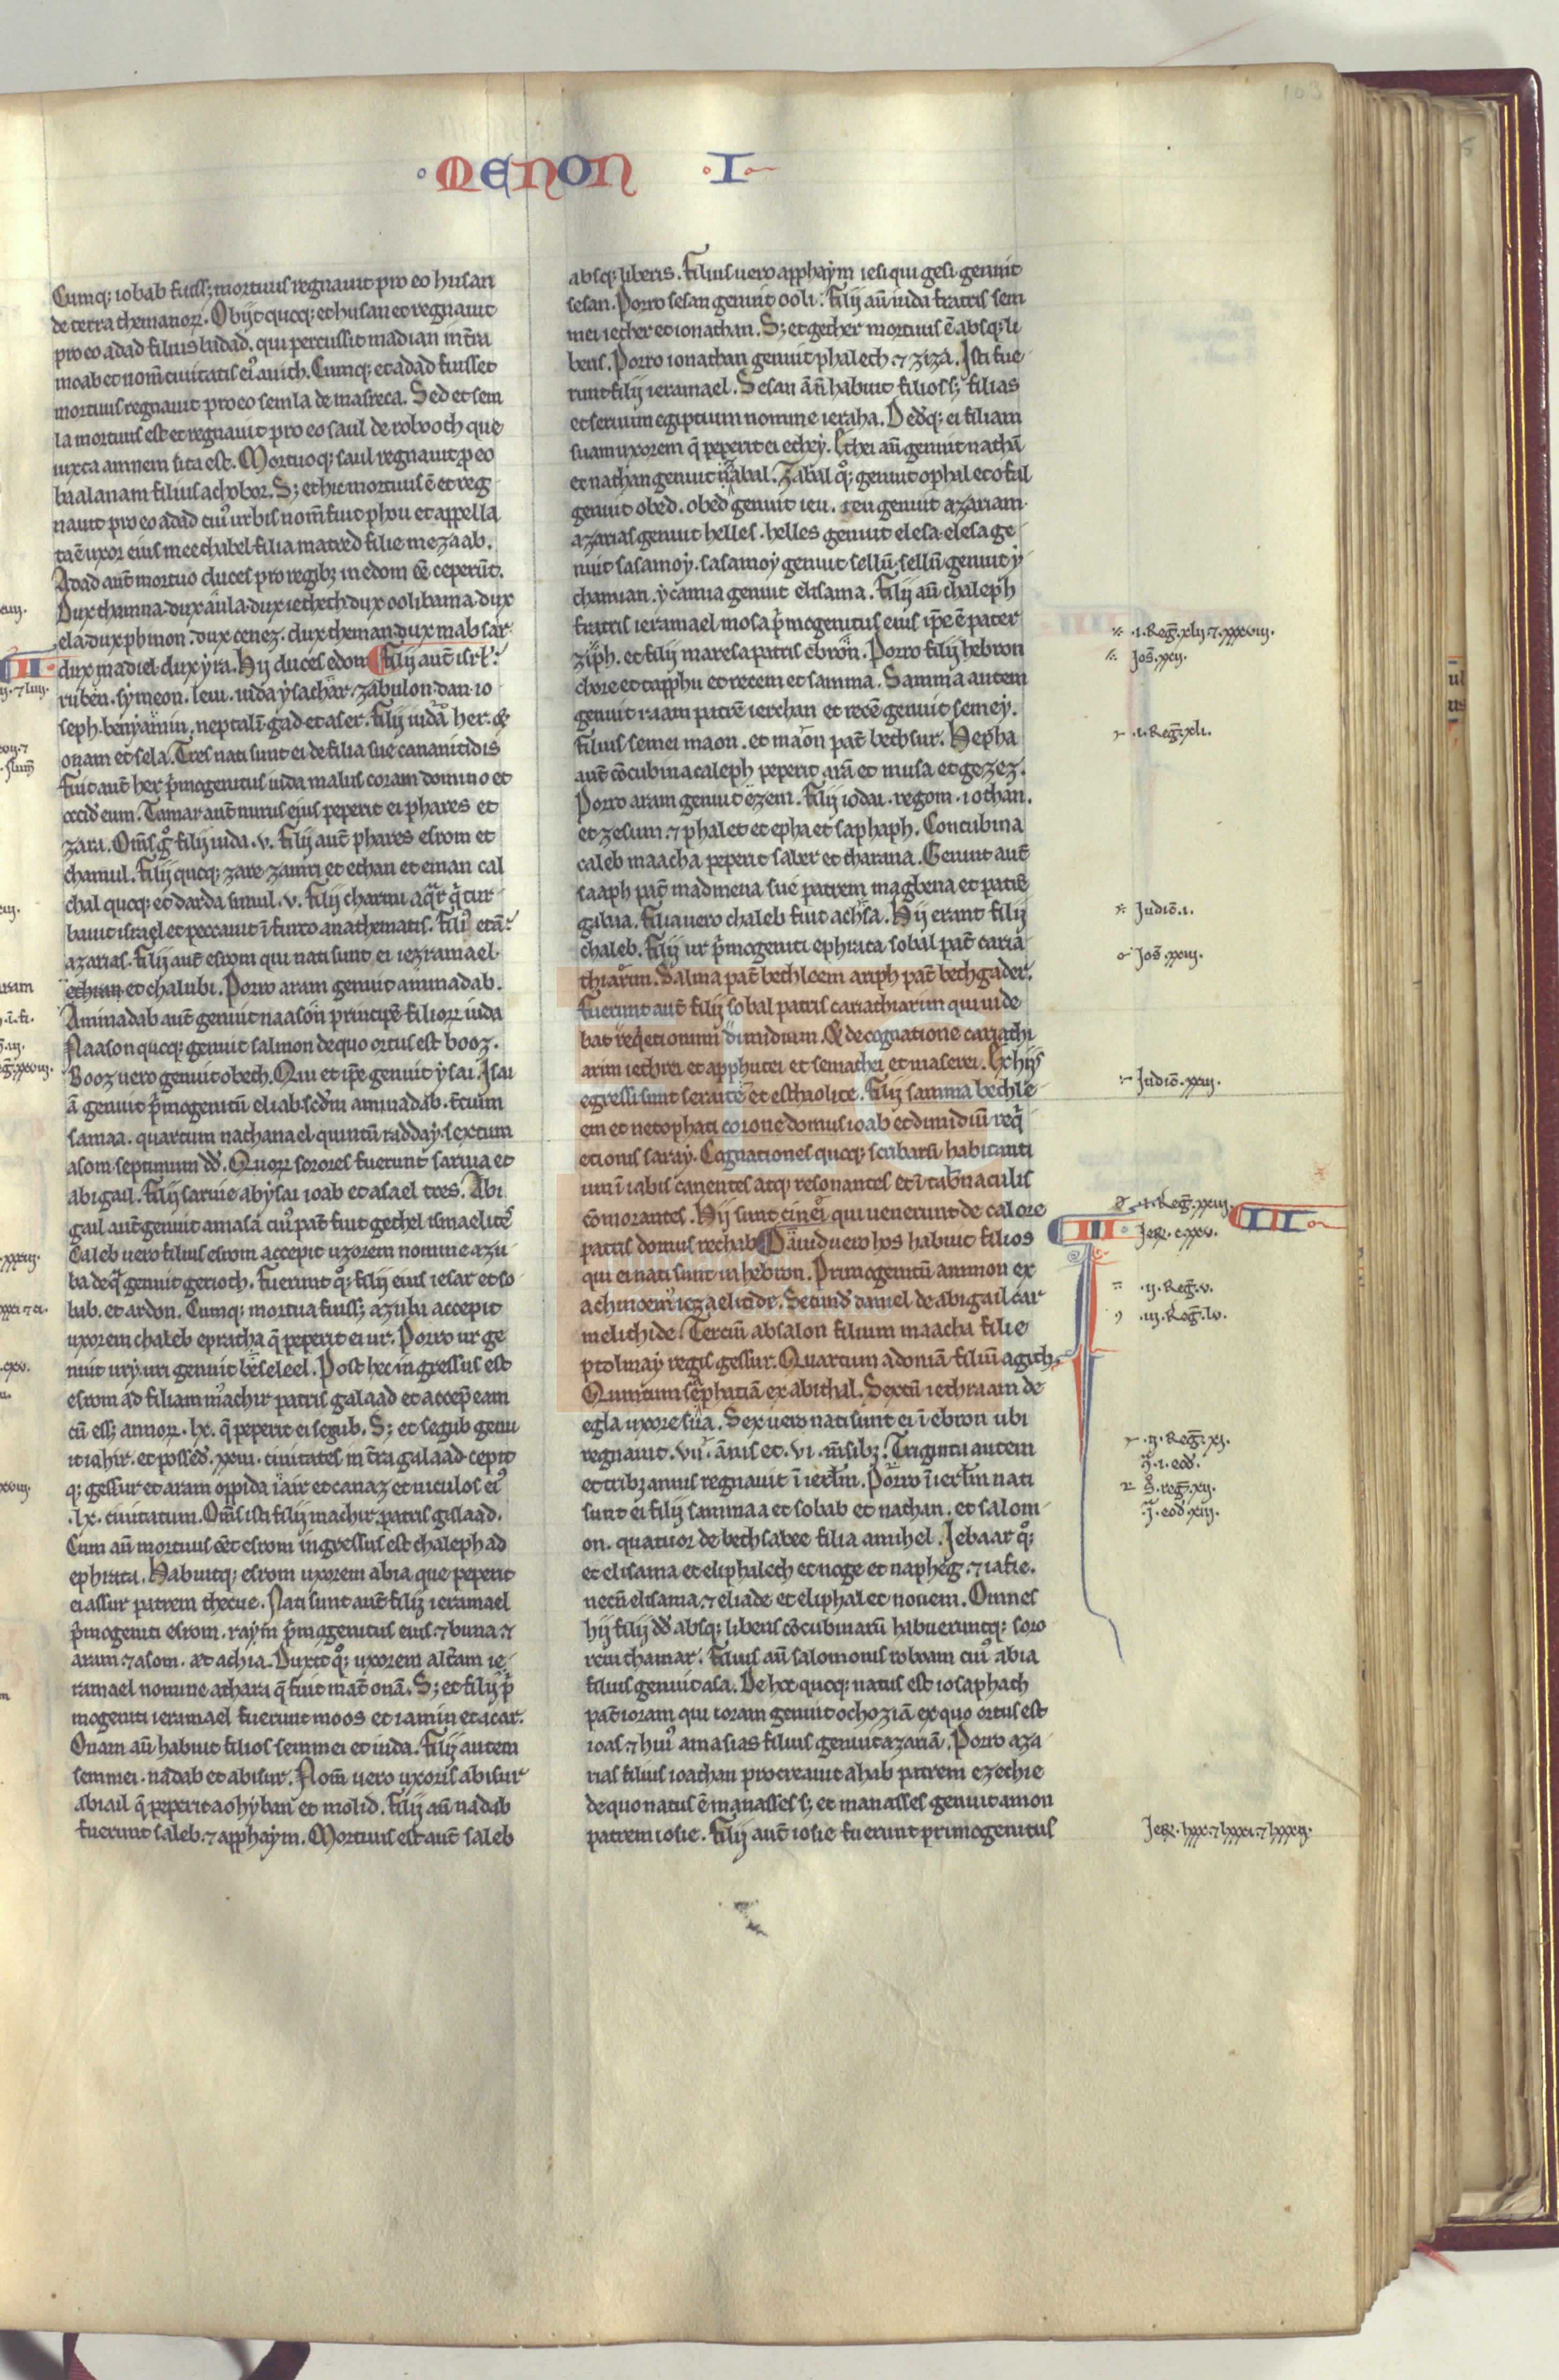 MENON I
Cumq; iobab fuiss; mortuus regnauit pro eo husan
de terra themanorꝝ. Obijt quoq; et husan et regnauit
pro eo adad filius badad. qui percussit madian in t̄ra
moab et nom̄ ciuitatis eiꝰ auith. Cumq; et adad fuisset
mortuus regnauit pro eo semla de masreca. Sed et sem
la mortuus est et regnauit pro eo saul de robooth que
iuxta amnem sita est. Mortuoq; saul regnauit ꝓ eo
baalanam filius achobor. S; et hic mortuus ē et reg
nauit pro eo adad cuiꝰ urbis nom̄ fuit phou et appella
ta ē uxor eius meechabel filia matred filie mezaab.
Adad aut̄ mortuo duces pro regibꝫ in edom ēē ceperūt.
Dux thamna. dux aula. dux iethech. dux oolibama. dux
ela. dux phinon. dux cenez. dux theman. dux mabsar.
dux madiel. dux yra. Hij duces edom Filij aut̄ isrl̄.
II
ruben. symeon. leui. iuda ysachar. zabulon. dan. io
seph. benyamin. neptalī. gad et aser. Filij iuda her. et
onam et sela. Tres nati sunt ei de filia sue cananitidis
fuit aut̄ her p̄mogenitus iuda malus coram domino et
occid̄ eum. Tamar aut̄ nurus ejus peperit ei phares et
zara. Om̄s g̊ filij iuda. v. Filij aut̄ phares esrom et
chamul. Filij quoq; zare zamri et echan et eman cal
chal quoq; et darda simul. v. Filij charmi
bauit israel et peccauit ī furto anathematis. Filiꝰ etā.
azarias. Filij aut̄ esrom qui nati sunt ei iezramael
et chalubi. Porro aram genuit aminadab.
Aminadab aut̄ genuit naason principē filiorꝝ iuda
Naason quoq; genuit salmon de quo ortus est booz.
Booz uero genuit obeth. Qui et ip̄e genuit ysai. Isai
ā genuit p̄mogenitū eliab. sed̄m aminadab. t̄cium
samaa. quartum nathanael. quintū radday. sextum
asom. septimum dd̄. Quorꝝ sorores fuerunt saruia et
abigail. Filij saruie abysai ioab et asael tres. Abi
gail aut̄ genuit amasā cuiꝰ pat̄ fuit gether ismaelites
Caleb uero filius esrom accepit uxorem nomine azu
ba de q̄ genuit gerioth. Fuerunt q̊; filij eius iesar et so
bab. et ardon. Cumq; mortua fuiss; azuba accepit
uxorem chaleb epratha q̄ peperit ei ur. Porro ur ge
nuit ury. uri genuit beseleel. Post hec ingressus est
esrom ad filiam machir patris galaad et accep̄ eam
cū ess; annorꝝ. lx. q̄ peperit ei segub. S; et segub genu
it iahir. et possed̄. xxiii. ciuitates in t̄ra galaad. cepit
q; gessur et aram oppida iair et canaz et uiculos eiꝰ
.lx. ciuitatum. Om̄s isti filij machir patris galaad.
Cum aū mortuus ēēt esrom ingressus est chaleph ad
ephrata. Habuitq; esrom uxorem abia que peperit
ei assur patrem thecue. Nati sunt aut̄ filij ieramael
p̄mogeniti esrom. raym p̄mogenitus eius. ⁊ buna. ⁊
aram. ⁊ asom. et achia. Duxit q̊; uxorem alt̄am ie
ramael nomine athara q̄ fuit mat̄ onā. S; et filij p̄
mogeniti ieramael fuerunt moos et iamin et acar.
Onam aū habuit filios semmei et iuda. Filij autem
semmei. nadab et abisur. Nom̄ uero uxoris abisur
abiail q̄ peperit ei ahyban et molid. Filij aū nadab
fuerunt saleb. ⁊ apphaym. Mortuus est aut̄ saleb
absq; liberis. Filius uero apphaym iesi qui gesi genuit
sesan. Porro sesan genuit ooli. Filij aū iuda fratris sem
mei iether et ionathan. S; et gether mortuus ē absq; li
beris. Porro ionathan genuit phalech. ⁊ ziza. Isti fue
runt filij ieramael. Sesan āū habuit filios s; filias
et seruum egiptium nomine ieraha. Dedq; ei filiam
suam uxorem q̄ peperit ei ethey. Ethei aū genuit nathā
et nathan genuit zabal. Zabal q̊; genuit ophal et ofal
genuit obed. obed genuit ieu. ieu genuit azariam.
azarias genuit helles. helles genuit elesa. elesa ge
nuit sasamoy. sasamoy genuit sellū. sellū genuit y
chamian. ycamia genuit elisama. Filij aū chaleph
fratris ieramael. mosa p̄mogenitus eius ip̄e ē pater
ziph. et filij maresa patris ebron. Porro filij hebron
chore et tapphu et recem et samma. Samma autem
genuit raam patrē ierchan et recē genuit semey.
Filius semei maon. et maon pat̄ bethsur. Hepha
aut̄ cōcubina caleph peperit arā et musa et gezez.
Porro aram genuit ezem. Filij iodai. regom. iothan.
et zesum. ⁊ phalet et epha et saphaph. Concubina
caleb maacha peperit saber et tharana. Genuit aut̄
saaph pat̄ madmena sue patrem magbena et patrē
gabaa. filia uero chaleb fuit achsa. Hij erant filij
chaleb. Filij ur p̄mogeniti ephrata. sobal pat̄ caria
thiarim. Salma pat̄ bethleem ariph pat̄ bethgader.
fuerunt aut̄ filij sobal patris cariathiarim qui uide
bat req̄etionum dimidium. Et de cognatione cariathi
arim iethrei et apphutei et semathei et maserei. Ex hijs
egressi sunt seraite et esthaolite. Filij samma bethle
em et netophati corone domus ioab et dimidiū req̄
etionis saray. Cognationes quoq; scribarū habitanti
um ī iabis canentes atq; resonantes et ī tab̄naculis
cōmorantes. Hij sunt cinei qui uenerunt de calore
patris domus rechab Dauid uero hos habuit filios
III
qui ei nati sunt in hebron. Primogenitū amnon ex
achinoem iezraelitide. Secund̄ daniel de abigail car
melithide. Terciū absalon filium maacha filie
ptolmay regis gessur. Quartum adoniā filiū agith.
Quintum sephatiā ex abithal. Sextū iethraam de
egla uxore sua. Sex uero nati sunt ei ī ebron ubi
regnauit. vii. ānis et. vi. m̄sibꝫ. Triginta autem
et tribꝫ annis regnauit ī ierl̄m. Porro ī ierl̄m nati
sunt ei filij sammaa et sobab et nathan. et salom
on. quatuor de bethsabee filia amihel. Jebaar q̊;
et elisama et eliphalech et noge et napheg. ⁊ iafie.
necū elisama. ⁊ eliade et eliphalet nouem. Omnes
hij filij dd̄ absq; liberis cōcubinarū habueruntq; soro
rem thamar. Filius aū salomonis roboam cuiꝰ abia
filius genuit asa. De hoc quoq; natus est iosaphath
pat̄ ioram qui ioram genuit ochoziā ex quo ortus est
ioas. ⁊ huiꝰ amasias filius genuit azariā. Porro aza
rias filius ioathan procreauit ahab patrem ezechie
de quo natus ē manasses s; et manasses genuit amon
patrem iosie. Filij aut̄ iosie fuerunt primogenitus
.i. Reḡ. xlij. ⁊. xxxviii.
Jos̄. xcij.
.i. Reḡ. xli.
Judic̄. i.
Jos̄. xxiij.
Judic̄. xxij.
III
.ij. Reḡ. v.
.iij. Reḡ. lv.
.ij. Reḡ. xj.